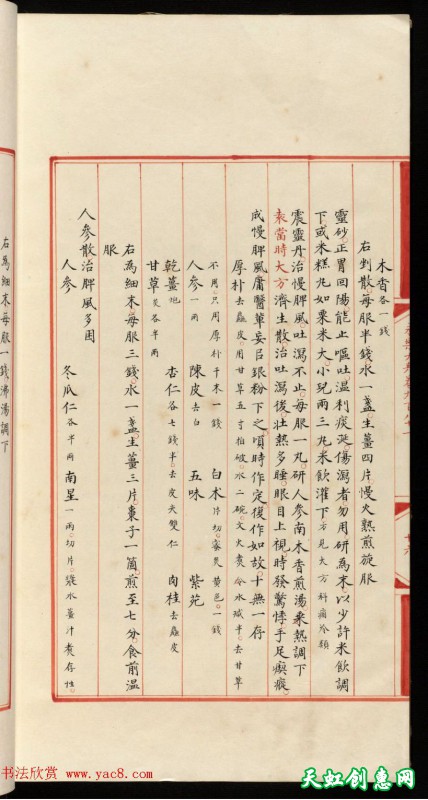 木香各一錢
右剉散每服半錢水一盞生薑四片慢火熟煎旋服
靈砂正胃回陽能止嘔吐温利痰涎傷瀉者勿用研為末以少許米飲調
下或米糕丸如粟米大小兒兩三丸米飲灌下方見大方科痼冷類
震靈丹治慢脾風吐瀉不止每服一丸研人參南木香煎湯乘熱調下
袁當時大方濟生散治吐瀉後壯熱多睡眼目上視時發驚悸手足瘈瘲
成慢脾風庸醫輩妄呂銀粉下之頃時作定復作如故十無一存
厚朴去麄皮用甘草五寸拍破水二碗文火煑令水減半去甘草
不用只用厚朴千木一錢 白木片切蜜炙黄色一錢
人參一兩 陳皮去白 五味 紫菀
乾薑炮 杏仁各七錢半去皮尖雙仁 肉桂去麄皮
甘草炙各半兩
右為細末每服三錢水一盞生薑三片棗子一箇煎至七分食前温
服
人參散治脾風多困
人參 冬瓜仁各半兩 南星一兩切片漿水薑汁煑存性
右為細末每服一錢沸湯調下
书法欣赏 www.yac8.com
天虹创惠网